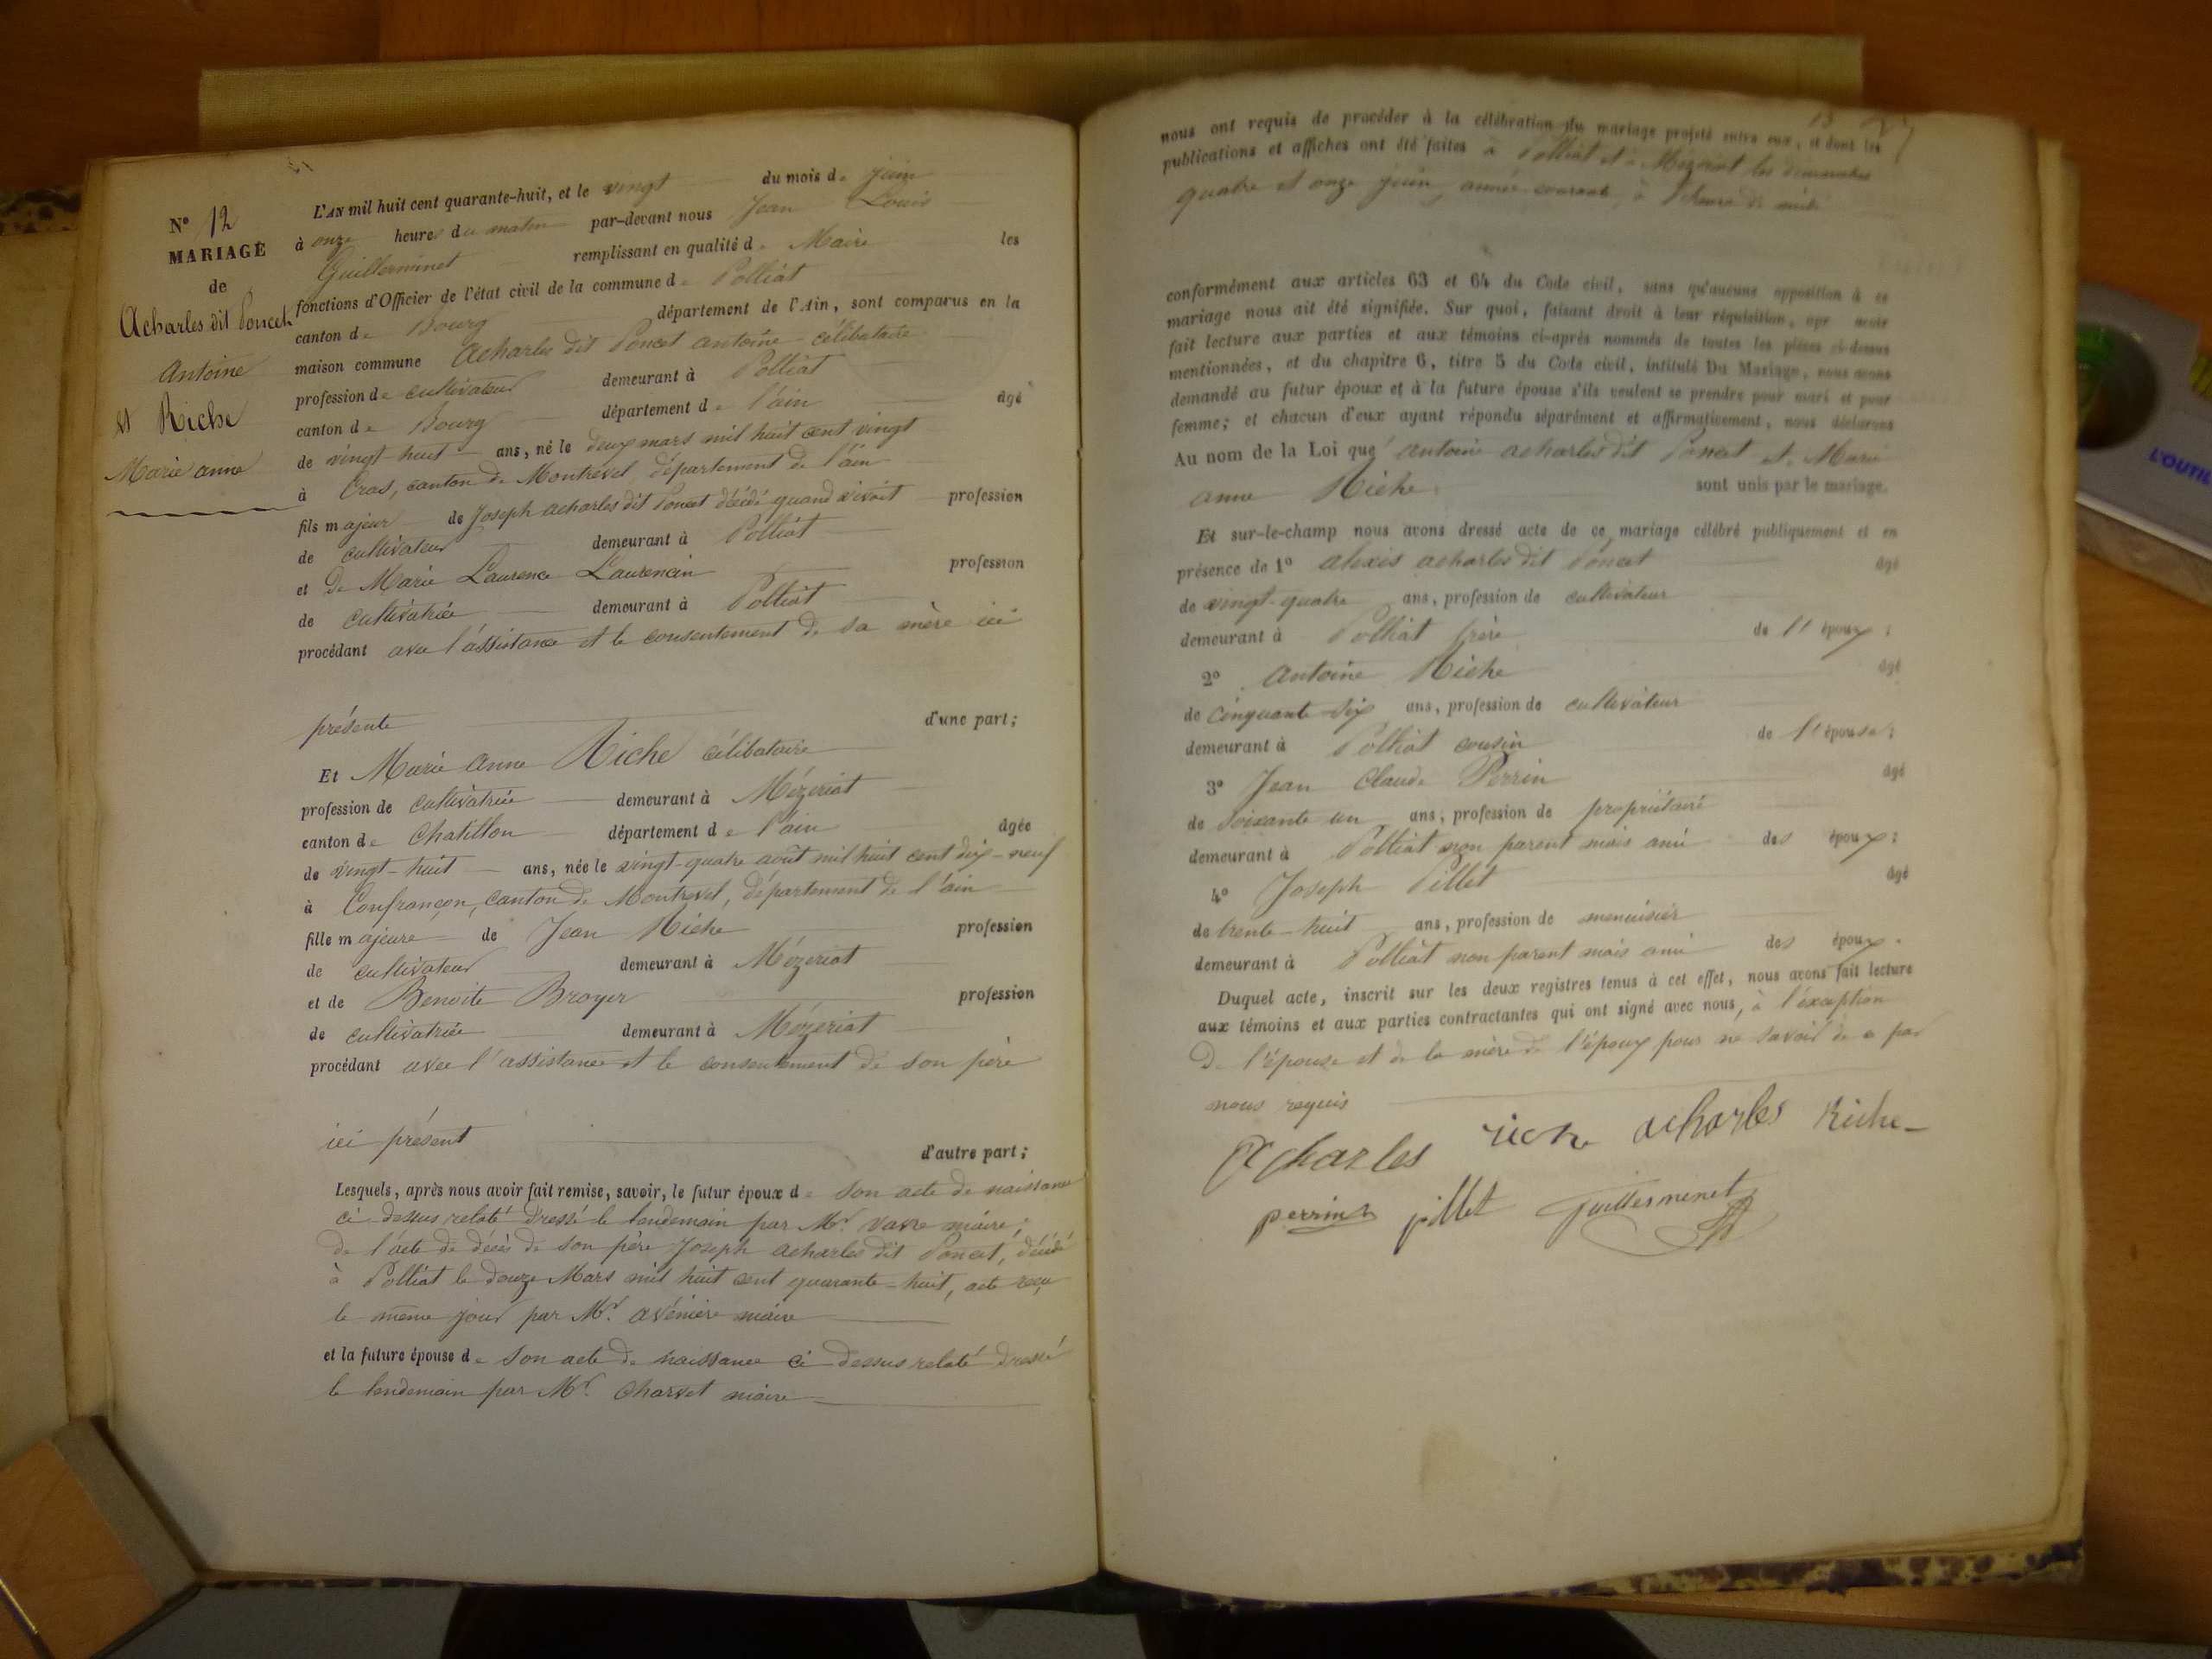 N° 12
MARIAGE
de
Acharles dit Poncet
Antoine
et Riche
Marie anne
L'AN mil huit cent quarante-huit, et le vingt du mois de juin
à onze heures du matin par-devant nous Jean Louis
Guillerminet remplissant en qualité de Maire les
fonctions d'Officier de l'état civil de la commune de Polliat
canton de Bourg département de l'Ain, sont comparus en la
maison commune Acharles dit Poncet antoine célibataire
profession de cultivateur demeurant à Polliat
canton de Bourg département de l'ain âgé
de vingt-huit ans, né le deux mars mil huit cent vingt
à Cras, canton de Montrevel, département de l'ain
fils majeur de Joseph acharles dit Poncet décédé quand vivoit profession
de cultivateur demeurant à Polliat
et de Marie Laurence Laurencin profession
de cultivatrice demeurant à Polliat
procédant avec l'assistance et le consentement de sa mère ici
présente d'une part;
Et Marie Anne Riche célibataire
profession de cultivatrice demeurant à Mézeriat
canton de Chatillon département de l'ain âgée
de vingt-huit ans, née le vingt-quatre août mil huit cent dix-neuf
à Confrançon, canton de Montrevel, département de l'ain
fille majeure de Jean Riche profession
de cultivateur demeurant à Mézeriat
et de Benoite Broyer profession
de cultivatrice demeurant à Mézeriat
procédant avec l'assistance et le consentement de son père
ici présent d'autre part;
Lesquels, après nous avoir fait remise, savoir, le futur époux de son acte de naissance
ci-dessus relaté dressé le lendemain par Mr. vavre maire;
de l'acte de décès de son père Joseph acharles dit Poncet, décédé
à Polliat le douze Mars mil huit cent quarante-huit, acte reçu
le même jour par Mr. avénière maire
et la future épouse de son acte de naissance ci-dessus relaté dressé
le lendemain par Mr. Charvet maire
nous ont requis de procéder à la célébration du mariage projeté entre eux, et dont les
publications et affiches ont été faites à Polliat et à Mézeriat les dimanches
quatre et onze juin, année courante, à l'heure de midi
conformément aux articles 63 et 64 du Code civil, sans qu'aucune opposition à ce
mariage nous ait été signifiée. Sur quoi, faisant droit à leur réquisition, apr avoir
fait lecture aux parties et aux témoins ci-après nommés de toutes les pièces ci-dessus
mentionnées, et du chapitre 6, titre 5 du Code civil, intitulé Du Mariage, nous avons
demandé au futur époux et à la future épouse s'ils veulent se prendre pour mari et pour
femme; et chacun d'eux ayant répondu séparément et affirmativement, nous déclarons
Au nom de la Loi que antoine acharles dit Poncet et Marie
anne Riche sont unis par le mariage.
Et sur-le-champ nous avons dressé acte de ce mariage célébré publiquement et en
présence de 1° alexis acharles dit Poncet âgé
de vingt-quatre ans, profession de cultivateur
demeurant à Polliat frère de l' époux;
2° Antoine Riche âgé
de cinquante-six ans, profession de cultivateur
demeurant à Polliat cousin de l'épouse;
3° Jean Claude Perrin âgé
de soixante un ans, profession de propriétaire
demeurant à Polliat non parent mais ami des époux;
4° Joseph Pillet âgé
de trente-huit ans, profession de menuisier
demeurant à Polliat non parent mais ami des époux.
Duquel acte, inscrit sur les deux registres tenus à cet effet, nous avons fait lecture
aux témoins et aux parties contractantes qui ont signé avec nous, à l'exception
De l'épouse et de la mère de l'époux pour ne savoir de ce par
nous requis
Acharles riche acharles Riche
perrin pillet Guillerminet
L'OUTIL